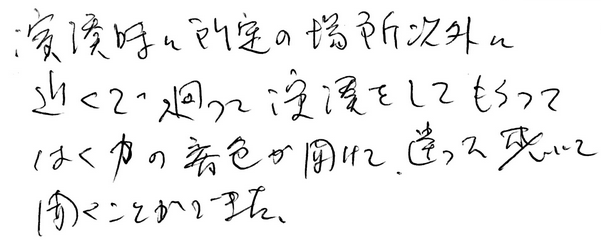 演漢時に所定の場所次外に
近くで廻って演漢をしてもらって
はく力の音色が聞けて、違った感じに
聞くことができた。